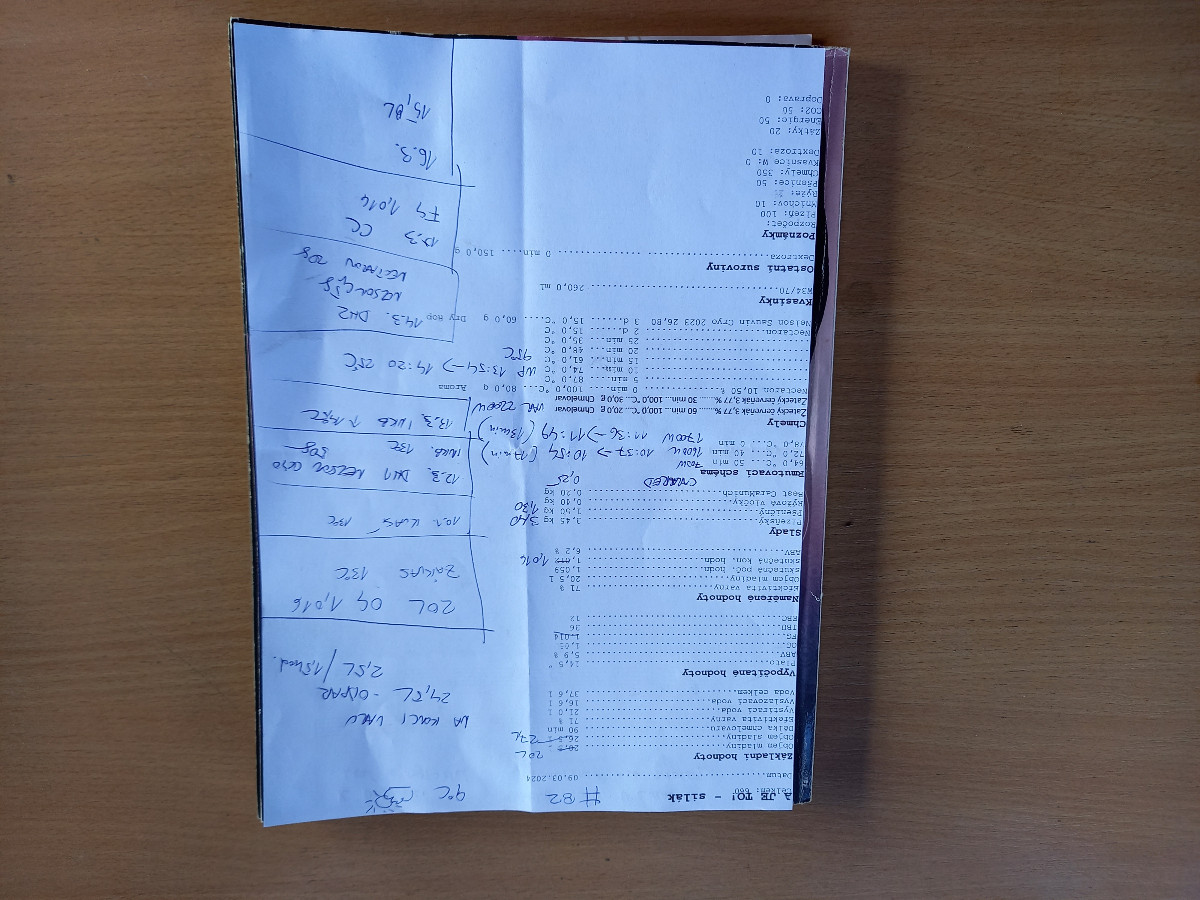 A JE TO! - silák #82 9°C
Datum 09.03.2024
Základní hodnoty
Objem mladiny 20L
Objem sladiny 27L
Délka chmelovaru 90 min
Efektivita varny 71 %
Vystírací voda 21,0 l
Vyslazovací voda 16,6 l
Voda celkem 37,6 l
NA KONCI VARU
24,5L - ODPAR
2,5L /
Vypočítané hodnoty
Plato 14,5 °
ABV 5,9 %
OG
FG 1.014
IBU 36
EBC 12
Naměřené hodnoty
Efektivita varny 71 %
Objem mladiny 20,5 l
skutečná poč. hodn. 1,059
skutečná kon. hodn. 1,016
ABV 6,2 %
20L OG 1,016
ZÁKVAS 13°C
Slady
Plzeňský 3,45 kg 3,40
Pšeničný 1,50 kg 1,30
Rýžové vločky 0,40 kg
Best CaraMunich 0,20 kg 0,25
10.3. KVAS 13°C
Rmutovací schéma
64,0 °C... 50 min 700W
72,0 °C... 40 min 1600W 10:37 -> 10:54 (17min)
78,0 °C... 0 min 1700W 11:36 -> 11:49 (13min)
12.3. DH1 NELSON CRYO
30g
13°C
Chmely
Žatecký červeňák 3,77 % 60 min... 100,0 °C... 20,0 g Chmelovar VAR 2200W
Žatecký červeňák 3,77 % 30 min... 100,0 °C... 30,0 g Chmelovar
Nectaron 10,50 % 0 min... 100,0 °C... 80,0 g Aroma
5 min... 87,0 °C
10 min... 74,0 °C WP 13:54 -> 14:20 25°C
15 min... 61,0 °C 95°C
20 min... 48,0 °C
25 min... 35,0 °C
Nectaron 2 d... 15,0 °C
Nelson Sauvin Cryo 2023 26,80 3 d... 15,0 °C... 60,0 g Dry Hop
14.3. DH2
NELSON
NECTARON
Kvasinky
W34/70 260,0 ml
Ostatní suroviny
Dextroza 0 min... 150,0 g
17.3 CC
FG 1,016
Poznámky
Rozpočet:
Plzeň: 100
Mnichov: 10
Rýže:
Pšenice: 50
Chmely: 350
Kvasnice W: 0
Dextroza: 10
16.3.
Zátky: 20
Energie: 50
CO2: 50
Doprava: 0
Celkem: 660